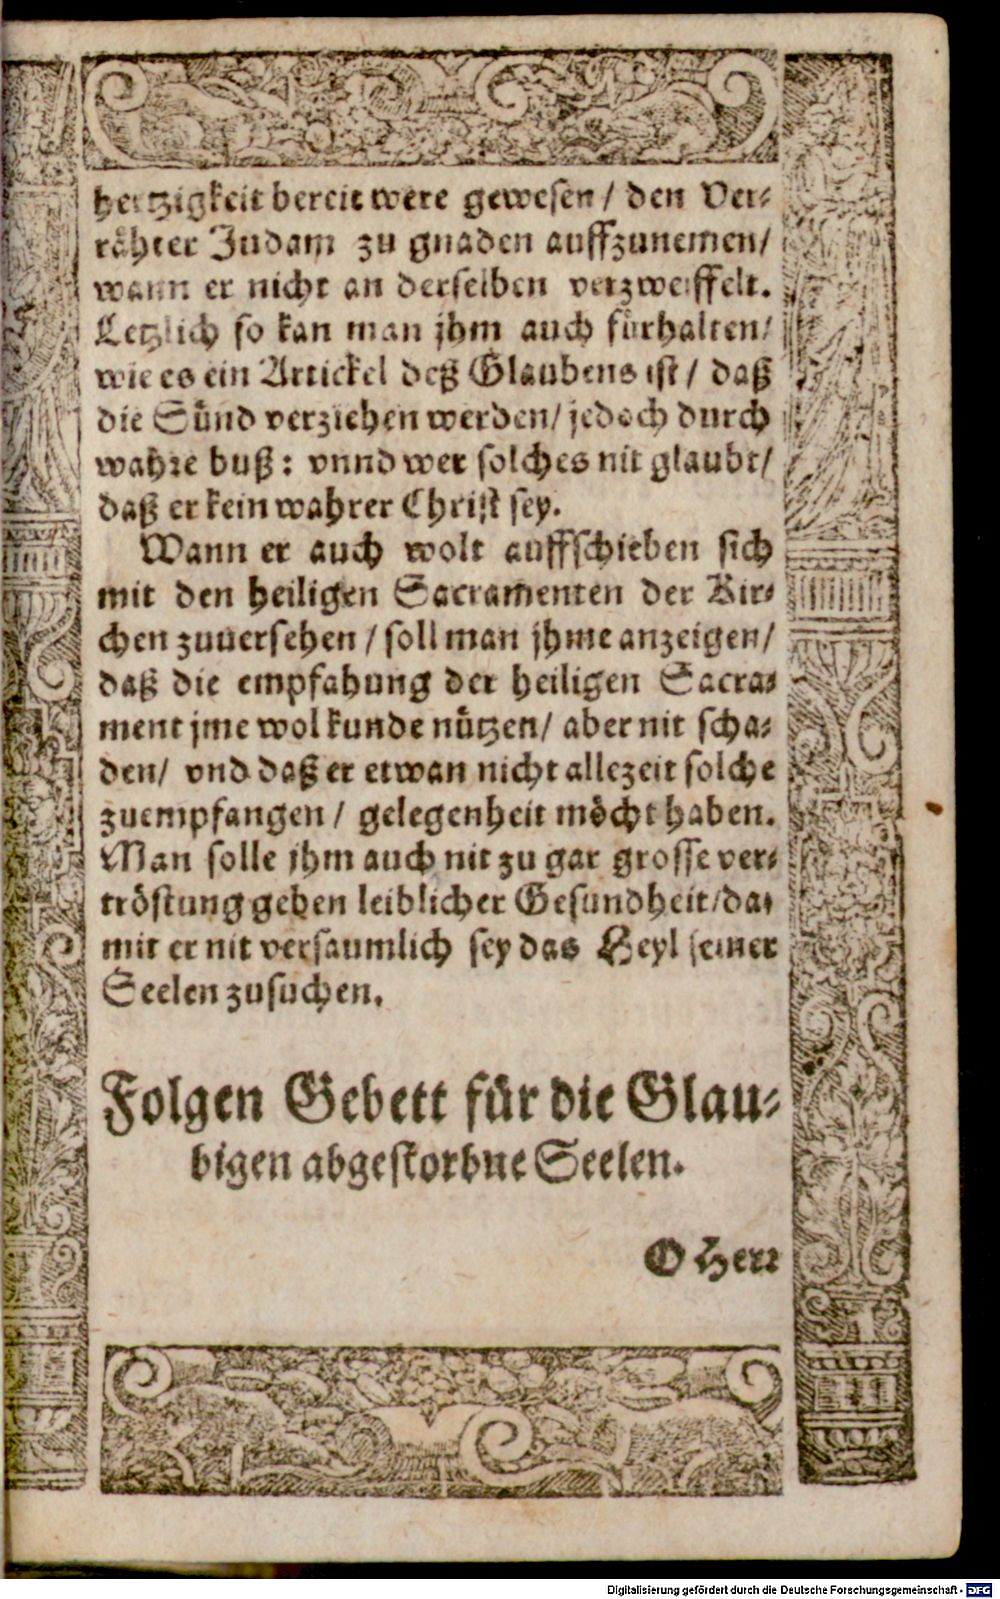 hertzigkeit bereit were gewesen / den Ver-
rähter Judam zu gnaden auffzunemen/
wann er nicht an derselben verzweiffelt.
Letzlich so kan man jhm auch fürhalten/
wie es ein Artickel deß Glaubens ist / daß
die Sünd verziehen werden/ jedoch durch
wahre buß: vnnd wer solches nit glaubt/
daß er kein wahrer Christ sey.
Wann er auch wolt auffschieben sich
mit den heiligen Sacramenten der Kir-
chen zuuersehen / soll man jhme anzeigen/
daß die empfahung der heiligen Sacra-
ment jme wol kunde nützen/ aber nit scha-
den/ vnd daß er etwan nicht allezeit solche
zuempfangen / gelegenheit möcht haben.
Man solle jhm auch nit zu gar grosse ver-
tröstung geben leiblicher Gesundheit/da-
mit er nit versaumlich sey das Heyl seiner
Seelen zusuchen.
Folgen Gebett für die Glau-
bigen abgestorbne Seelen.
O Herr
Digitalisierung gefördert durch die Deutsche Forschungsgemeinschaft - DFG